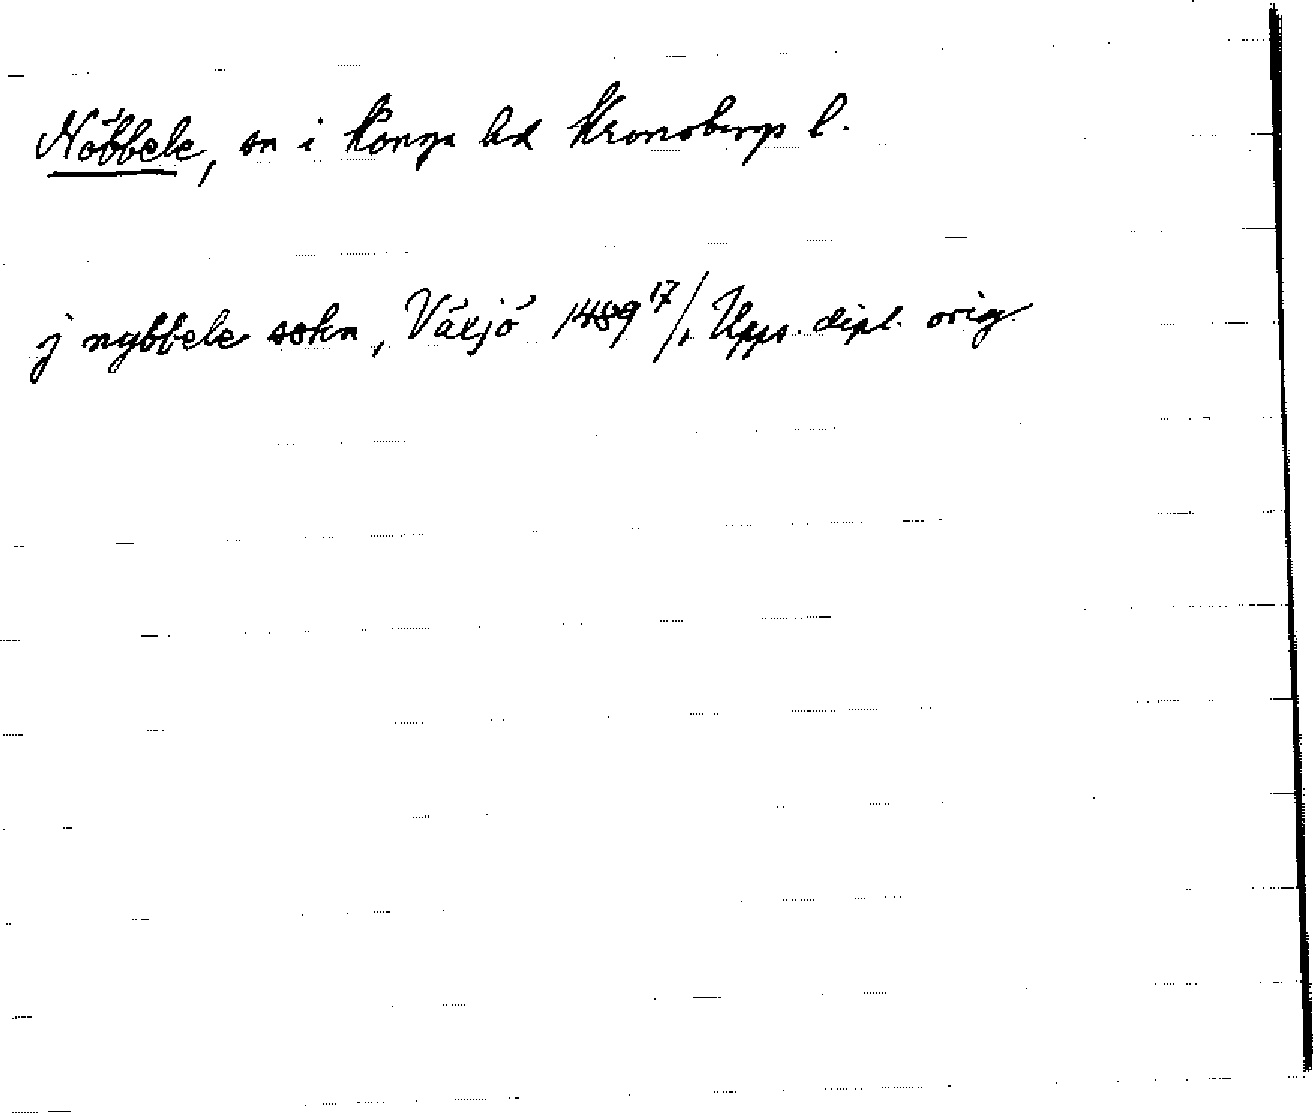 Nöbbele, sn i Konga hd Kronobergs l.
j nybbele sokn, Växjö 1489 17/1 Upps. dipl. orig